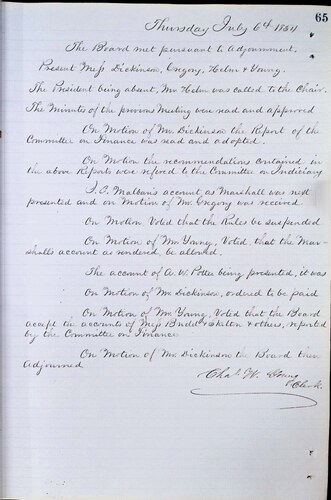 65
Thursday July 6th 1854
The Board met pursuant to adjournment.
Present Mess Dickinson, Gregory, Helm & Young.
The President being absent, Mr. Helm was called to the Chair.
The Minutes of the previous Meeting were read and approved
On Motion of Mr. Dickinson the Report of the
Committee on Finance was read and adopted.
On Motion the recommendations contained in
the above Reports were refered to the Committee on Judiciary
account as Marshall was next
presented and on Motion of Mr. Gregory was received
On Motion, Voted that the Rules be suspended
On Motion of Mr. Young, Voted, that the Mar-
shalls account as rendered, be allowed.
The account of A. W. Potter being presented, it was
On Motion of Mr. Dickinson, ordered to be paid
On Motion of Mr. Young, Voted that the Board
accept the accounts of Mess Budd & Skelton & others, reported
by the Committee on Finance
On Motion of Mr. Dickinson the Board then
adjourned
Chas. W. Young
Clerk.